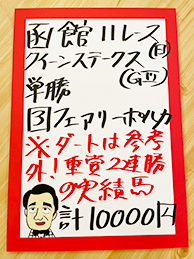 函館11レース
クイーンステークス(日)
(GⅢ)
単勝
3フェアリーポルカ
※ダートは参考
外!重賞2連勝
の実績馬
計10000円